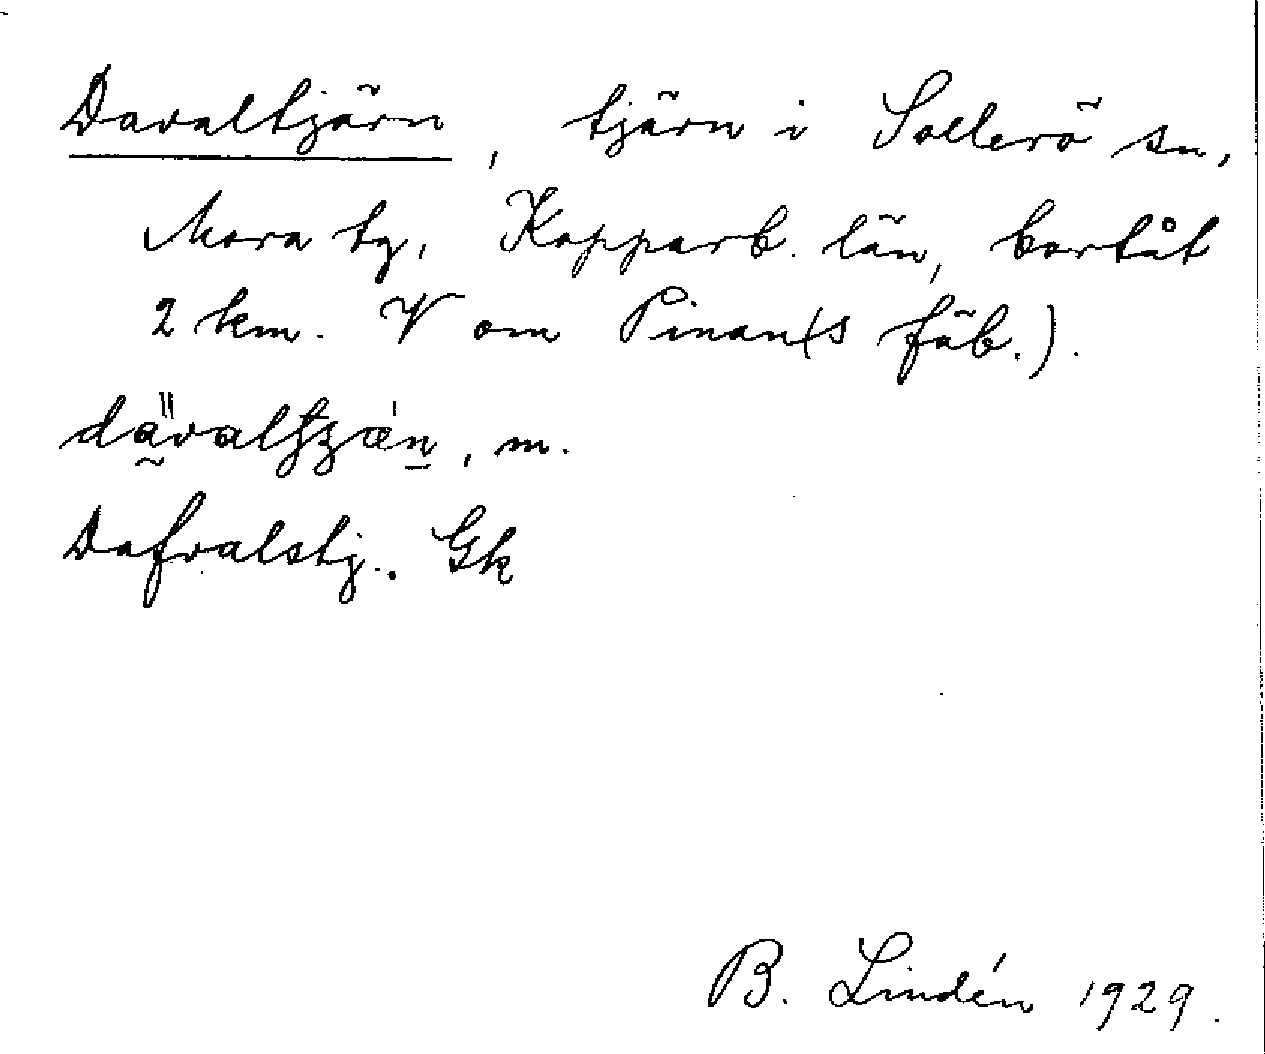 Davaltjärn, tjärn i Sollerö sn,
Mora tg, Kopparb. län, bortåt
2 km. V om Pinan(s fäb.).
, m.
Dafvalstj. Gk
B. Lindén 1929.